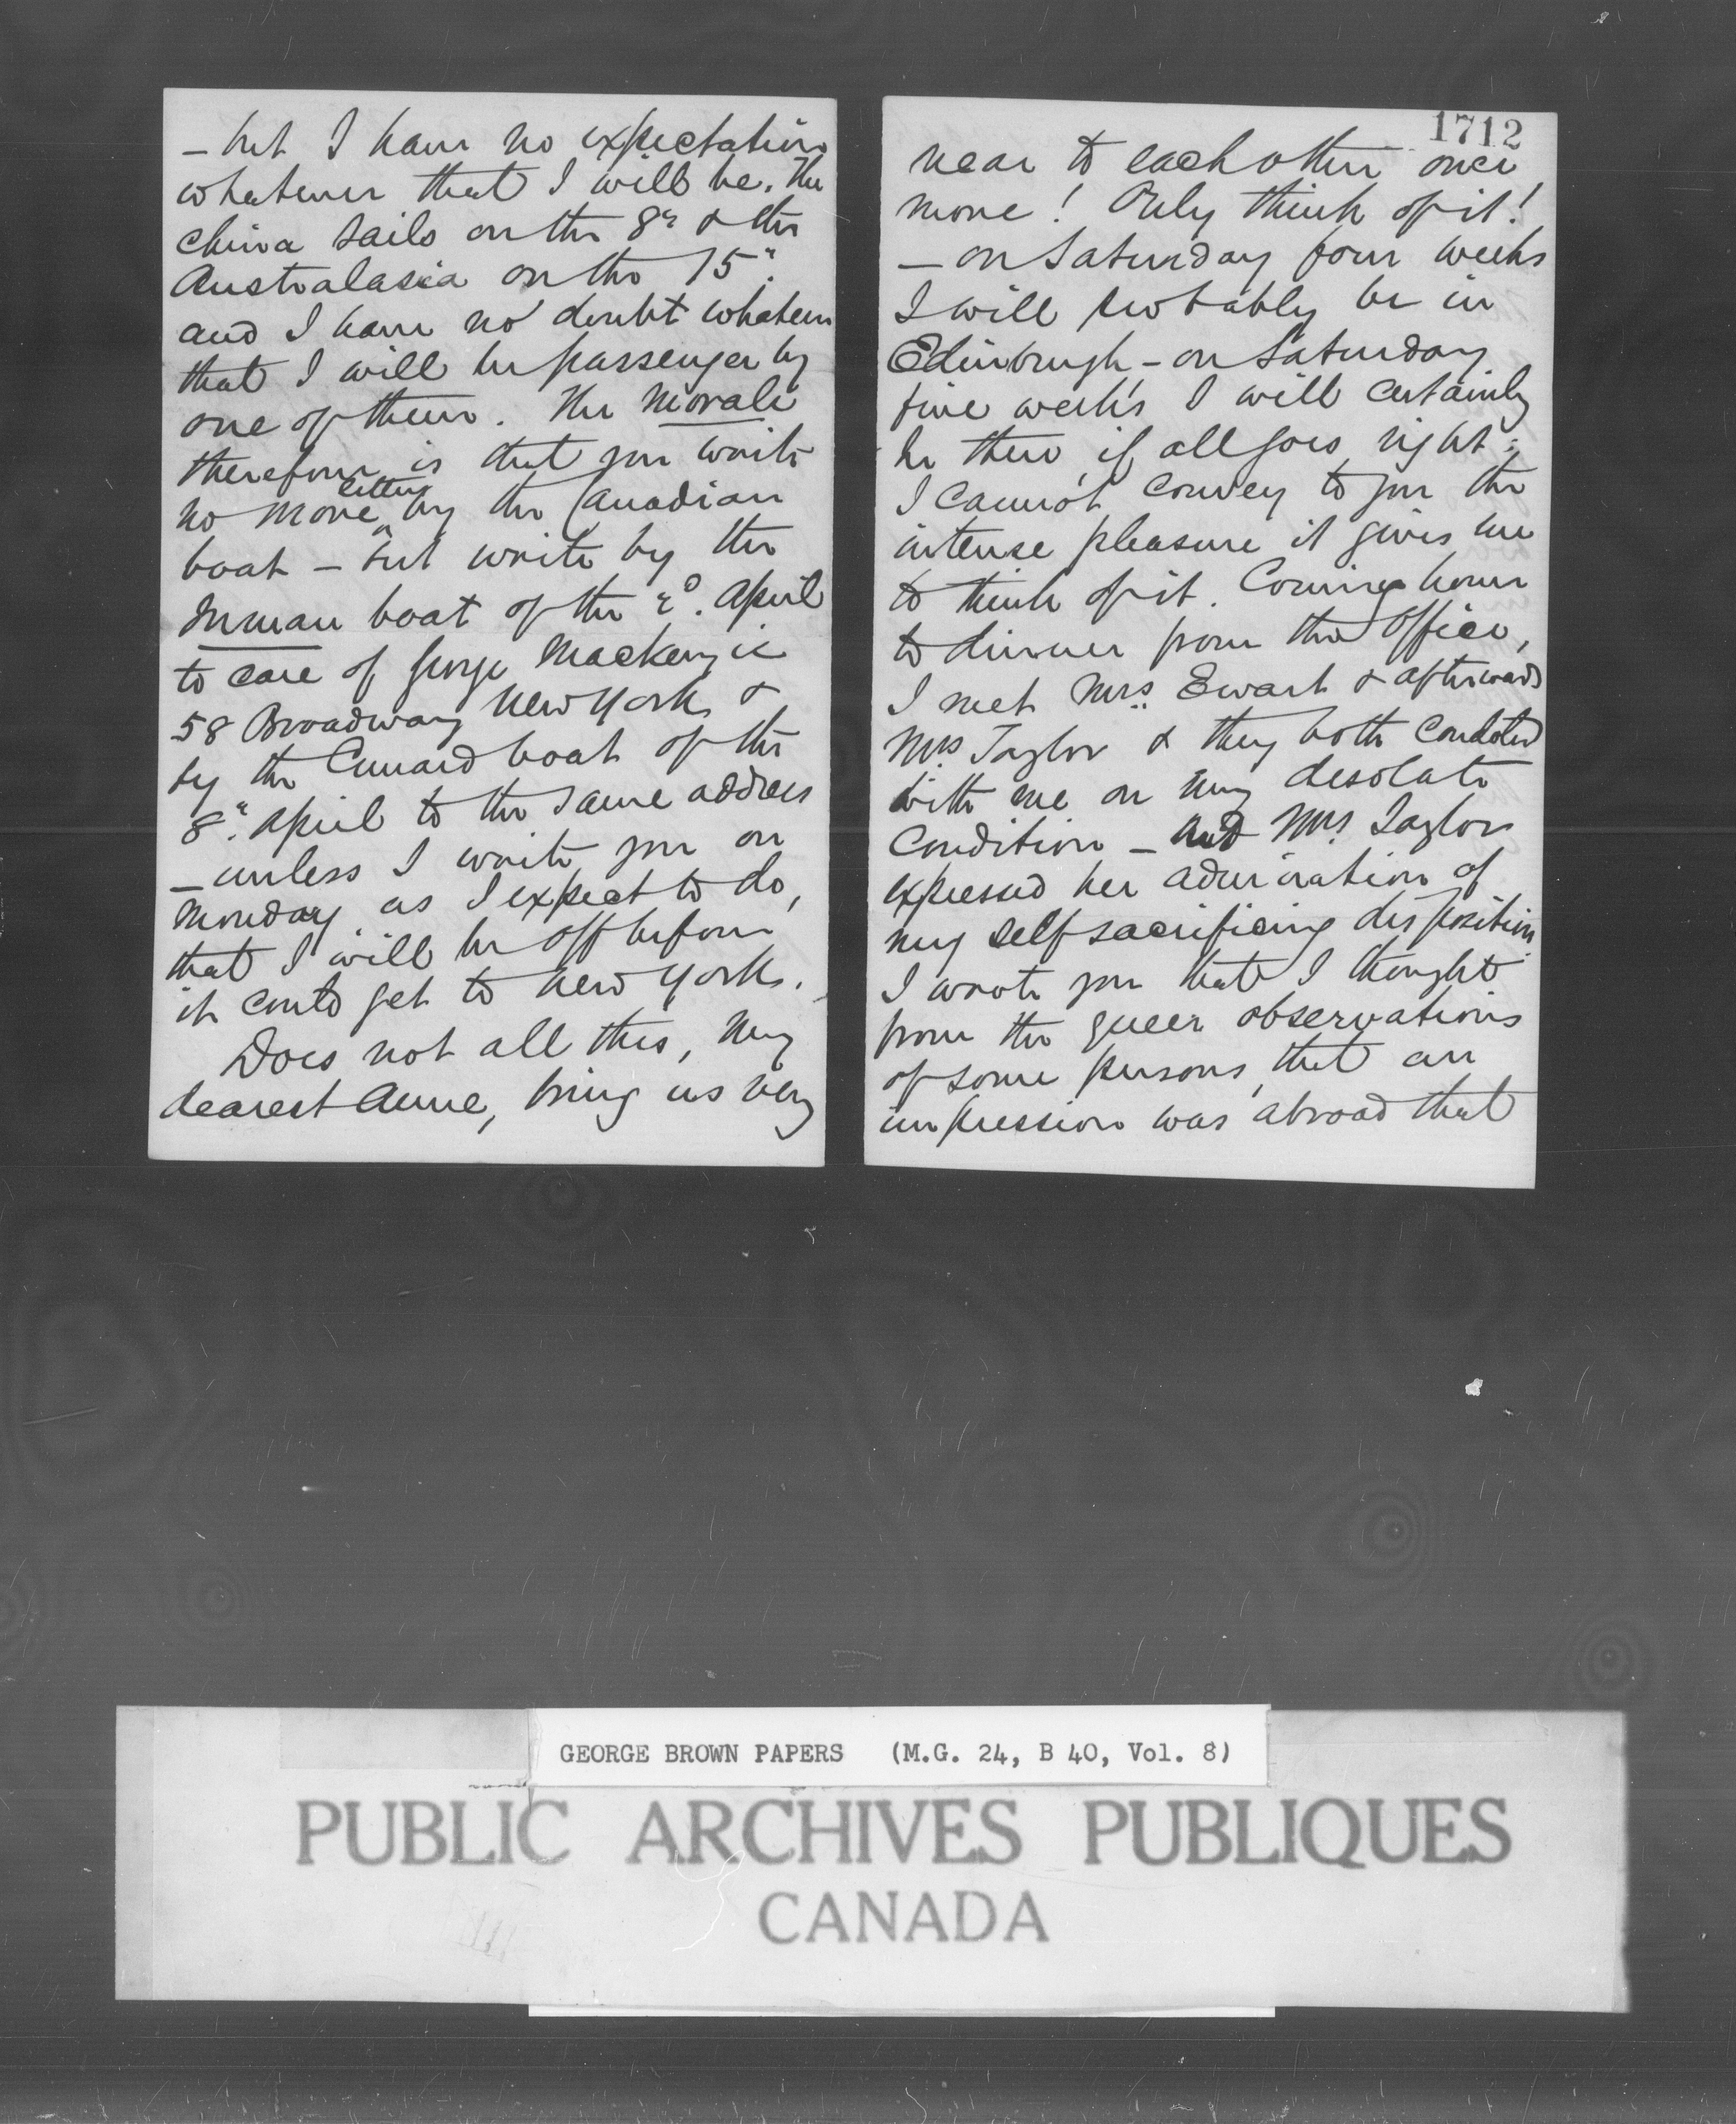 - but I have no expectation
whatever that I will be. The
China sails on the 8" & the
Australasia on the 15".
and I have no doubt whatever
that I will be passenger by
one of them. The morale
therefore is that you write
no more letters by the Canadian
boat - but write by the
Inman boat of the April
to care of George Mackenzie
58 Broadway New York &
by the Cunard boat of the
8" April to the same address
- unless I write you on
Monday, as I expect to do,
that I will be off before
it could get to New York.
Does not all this, my
dearest Anne, bring us very
1712
near to each other once
more! Only think of it!
- on Saturday four weeks
I will probably be in
Edinburgh - on Saturday
five weeks I will certainly
be there if all goes right.
I cannot convey to you the
intense pleasure it gives me
to think of it. Coming home
to dinner from the office,
I met Mrs. Ewart & afterwards
Mrs Taylor & they both condoled
with me on my desolate
condition - and Mrs Taylor
expressed her admiration of
my self sacrificing disposition.
I wrote you that I thought
from the queer observations
of some persons, that an
impression was abroad that
GEORGE BROWN PAPERS (M.G. 24, B 40, Vol. 8)
PUBLIC ARCHIVES PUBLIQUES
CANADA